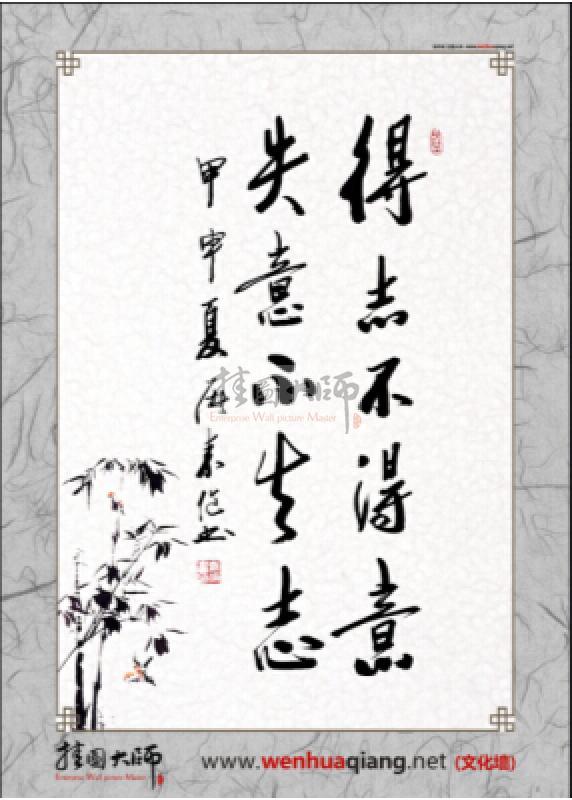 得志不得意
失意不失志
甲申夏
挂图大师
Enterprise Wall picture Master
挂图大师
Enterprise Wall picture Master
www.wenhuaqiang.net (文化墙)